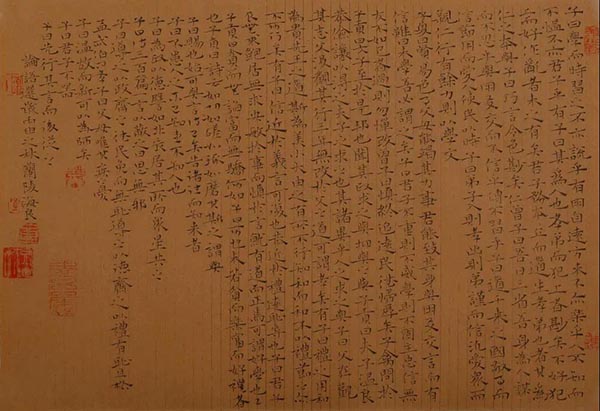 子曰學而時習之不亦說乎有朋自遠方來不亦樂乎人不知而
不慍不亦君子乎有子曰其為人也孝弟而好犯上者鮮矣不好犯
上而好作亂者未之有也君子務本本立而道生孝弟也者其為
仁之本與子曰巧言令色鮮矣仁曾子曰吾日三省吾身為人謀
而不忠乎與朋友交而不信乎傳不習乎子曰道千乘之國敬事而
信節用而愛人使民以時子曰弟子入則孝出則弟謹而信汎愛眾而
親仁行有餘力則以學文
子夏曰賢賢易色事父母能竭其力事君能致其身與朋友交言而有
信雖曰未學吾必謂之學矣子曰君子不重則不威學則不固主忠信無
友不如己者過則勿憚改曾子曰慎終追遠民德歸厚矣子禽問於
子貢曰夫子至於是邦也必聞其政求之與抑與之與子貢曰夫子溫良
恭儉讓以得之夫子之求之也其諸異乎人之求之與子曰父在觀
其志父沒觀其行三年無改於父之道可謂孝矣有子曰禮之用和
為貴先王之道斯為美小大由之有所不行知和而和不以禮節之亦
不可行也有子曰信近於義言可復也恭近於禮遠恥辱也子曰君子
食無求飽居無求安敏於事而慎於言就有道而正焉可謂好學也已
子貢曰貧而無諂富而無驕何如子曰可也未若貧而樂富而好禮者
也子貢曰詩云如切如磋如琢如磨其斯之謂與
子曰賜也始可與言詩已矣告諸往而知來者
子曰不患人之不己知患不知人也
子曰為政以德譬如北辰居其所而眾星共之
子曰詩三百一言以蔽之曰思無邪
子曰道之以政齊之以刑民免而無恥道之以德齊之以禮有恥且格
孟武伯問孝子曰父母唯其疾之憂
子曰溫故而知新可以為師矣
子曰君子不器
子曰先行其言而後從之
論語 蘭陵海良